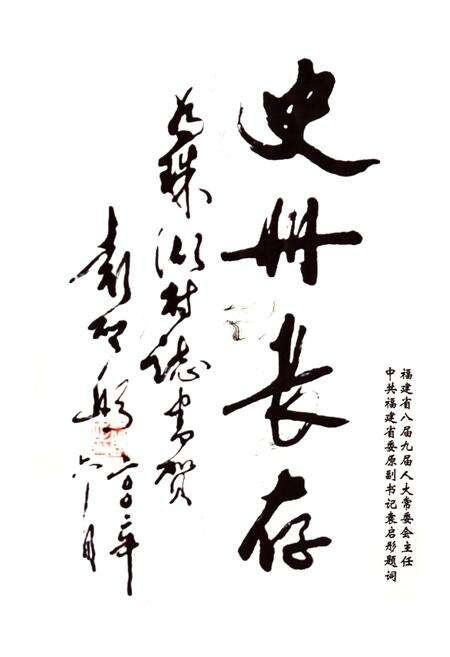 福建省八届九届人大常委会主任
中共福建省委原副书记袁启彤题词
史册长存
为珠湖村志书贺
袁启彤
二00二年
六月